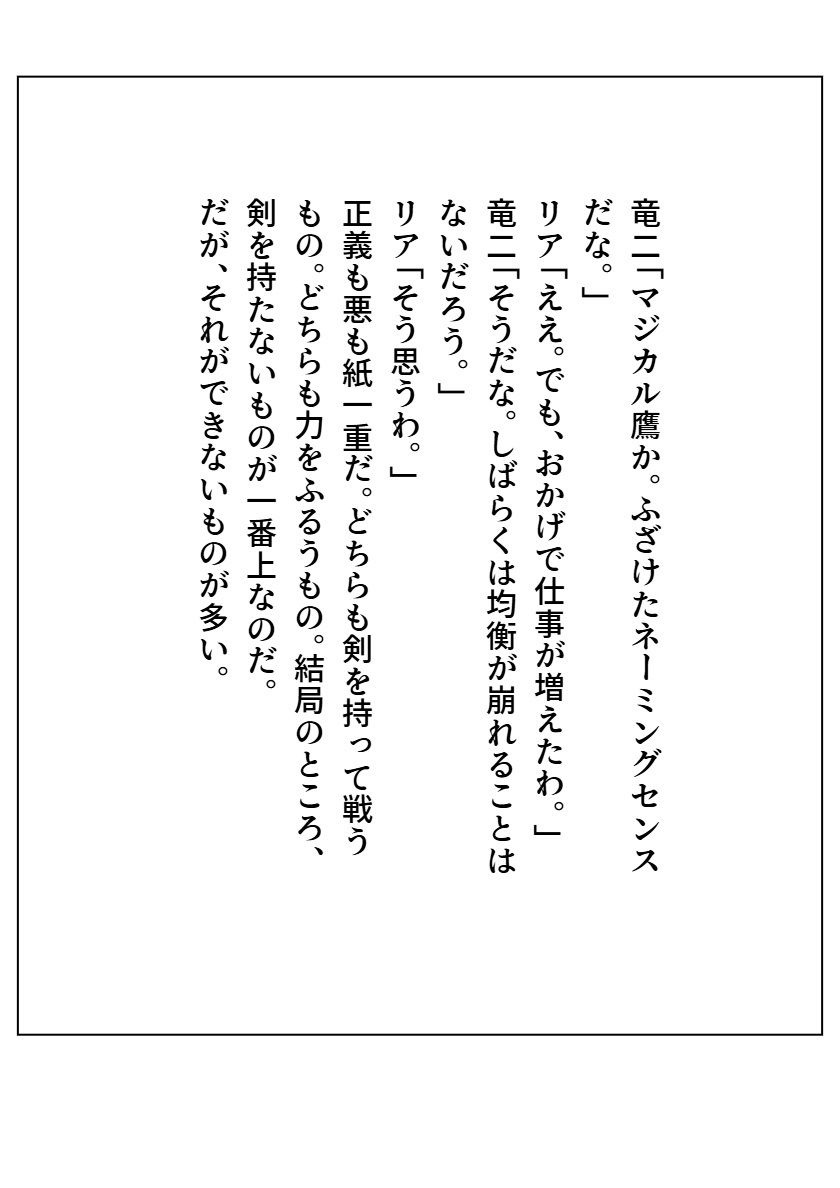 竜二「マジカル鷹か。ふざけたネーミングセンス
だな。」
リア「ええ。でも、おかげで仕事が増えたわ。」
竜二「そうだな。しばらくは均衡が崩れることは
ないだろう。」
リア「そう思うわ。」
正義も悪も紙一重だ。どちらも剣を持って戦う
もの。どちらも力をふるうもの。結局のところ、
剣を持たないものが一番上なのだ。
だが、それができないものが多い。